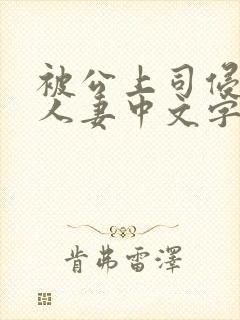 被公上司侵
人妻中文字
肯弗雷澤